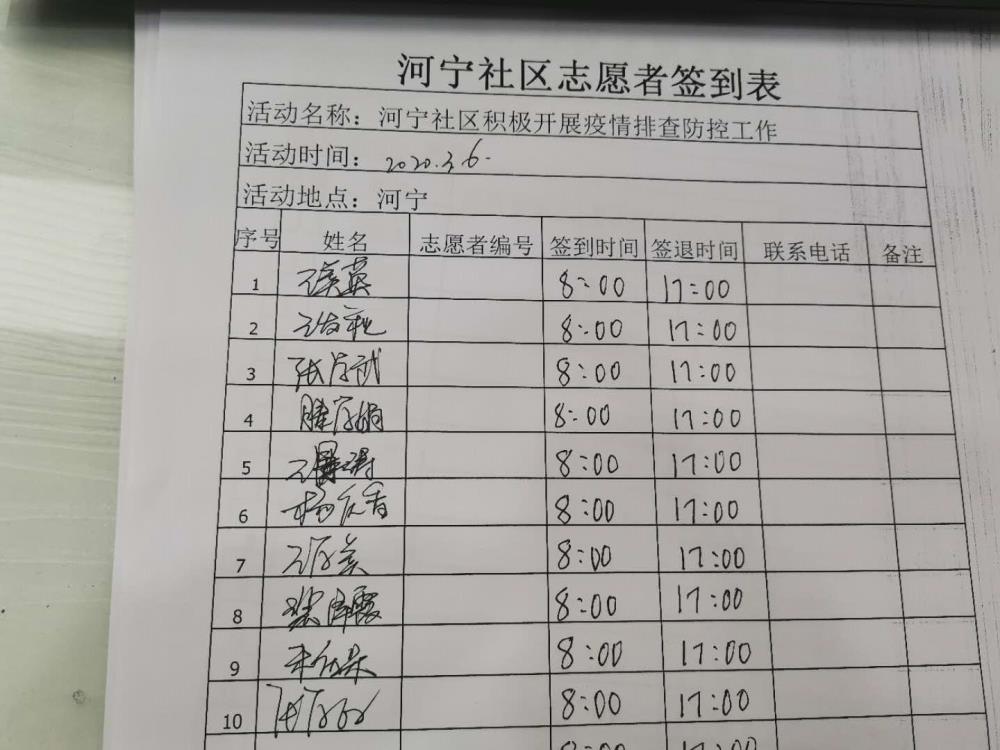 河宁社区志愿者签到表
活动名称：河宁社区积极开展疫情排查防控工作
活动时间：2020.3.6.
活动地点：河宁
序号 姓名 志愿者编号 签到时间 签退时间 联系电话 备注
1 英 8:00 17:00
2 8:00 17:00
3 张 武 8:00 17:00
4 娟 8:00 17:00
5 王 8:00 17:00
6 杨 香 8:00 17:00
7 王 8:00 17:00
8 梁 霞 8:00 17:00
9 8:00 17:00
10 8:00 17:00
8:00 17:00